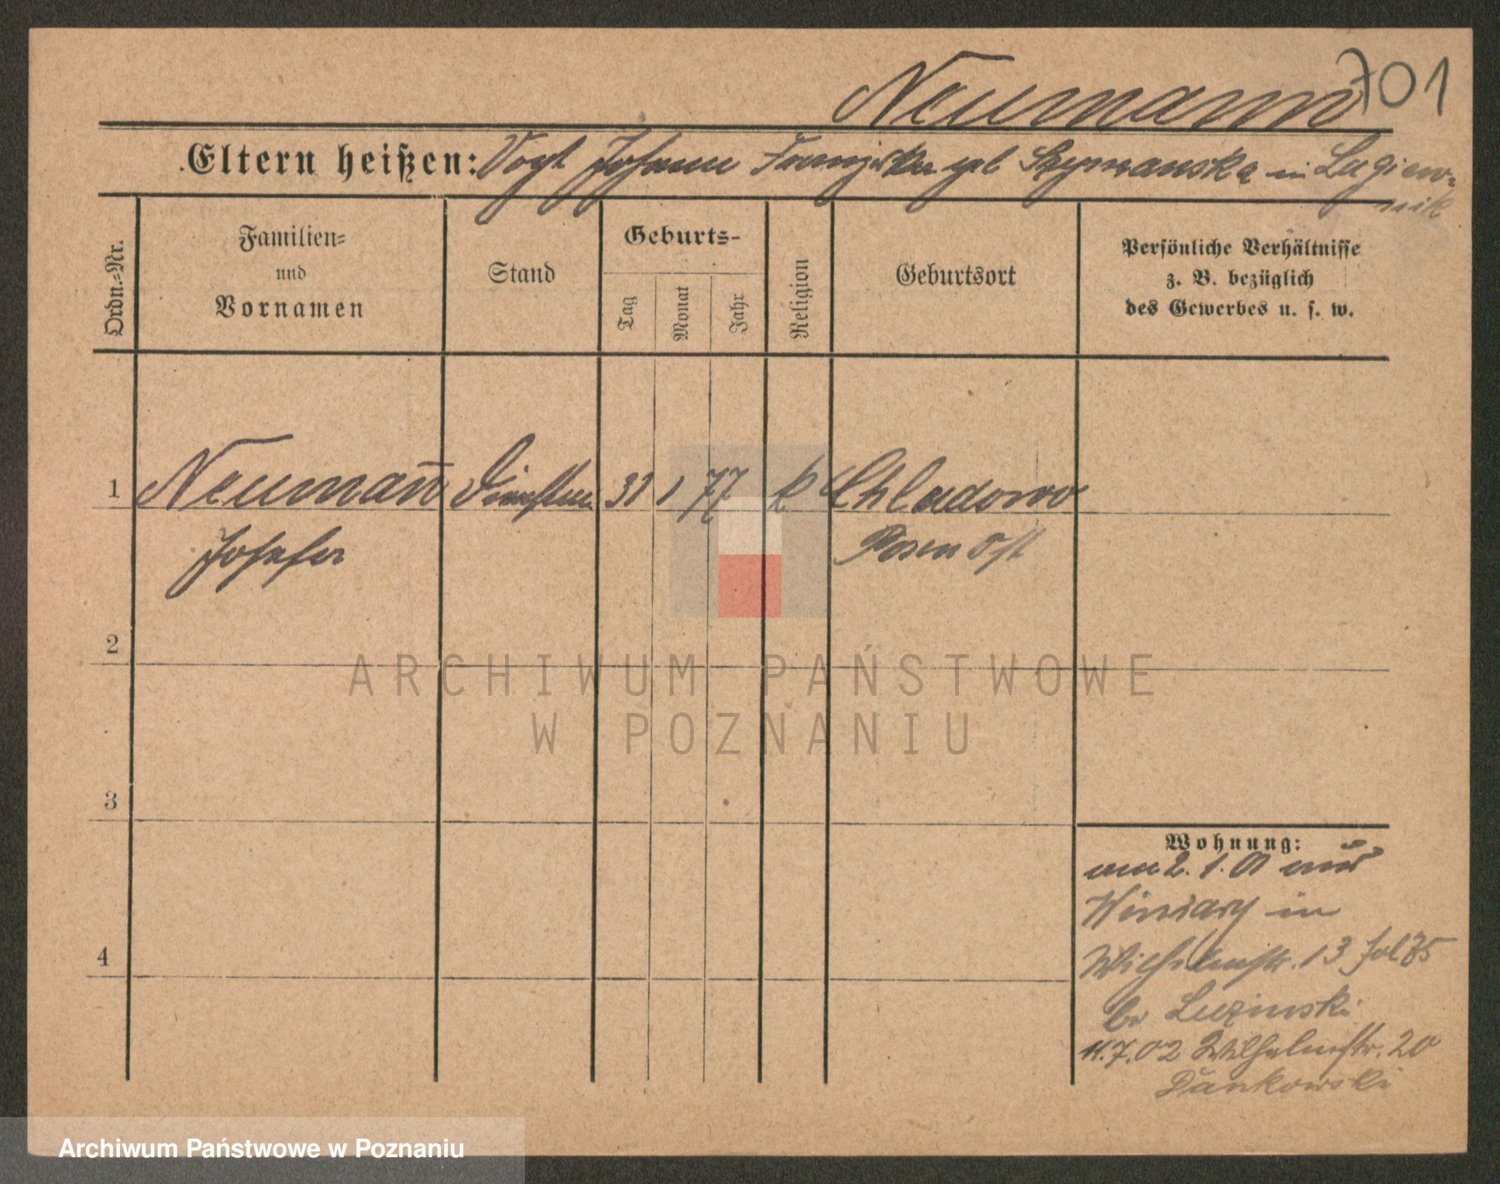 Neumann 701
Eltern heißen: Vogt Johann Franziska geb Szymanska in Lagiew-
nik
Ordn.-Nr.
Familien-
und
Vornamen
Stand
Geburts-
Tag
Monat
Jahr
Religion
Geburtsort
Persönliche Verhältnisse
z. B. bezüglich
des Gewerbes u. s. w.
1 Neumann 31 1 77 k Chladowo
Posen Ost
2
3
4
Wohnung:
am 2. 1. 01 aus
Winiary in
Wilhelmstr. 13
bei Luzinski
11.7.02 Wilhelmstr. 20
Dankowski
ARCHIWUM PAŃSTWOWE
W POZNANIU
Archiwum Państwowe w Poznaniu